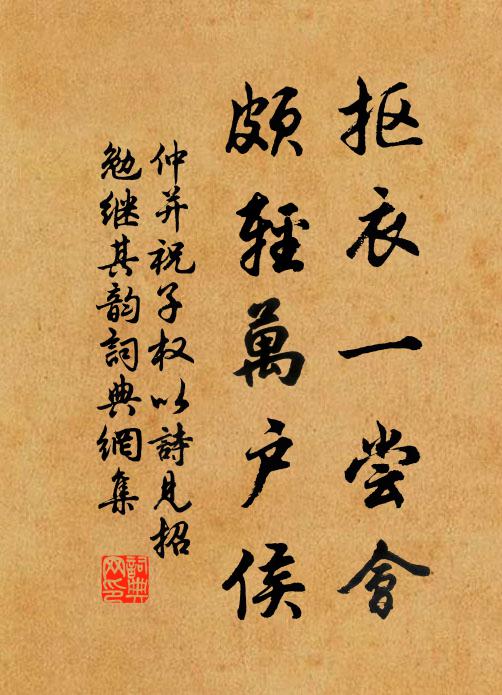 抠衣一尝會
頗輕萬户侯
仲并祝子权以詩見招
勉继其韵詞典網集
詞典网印